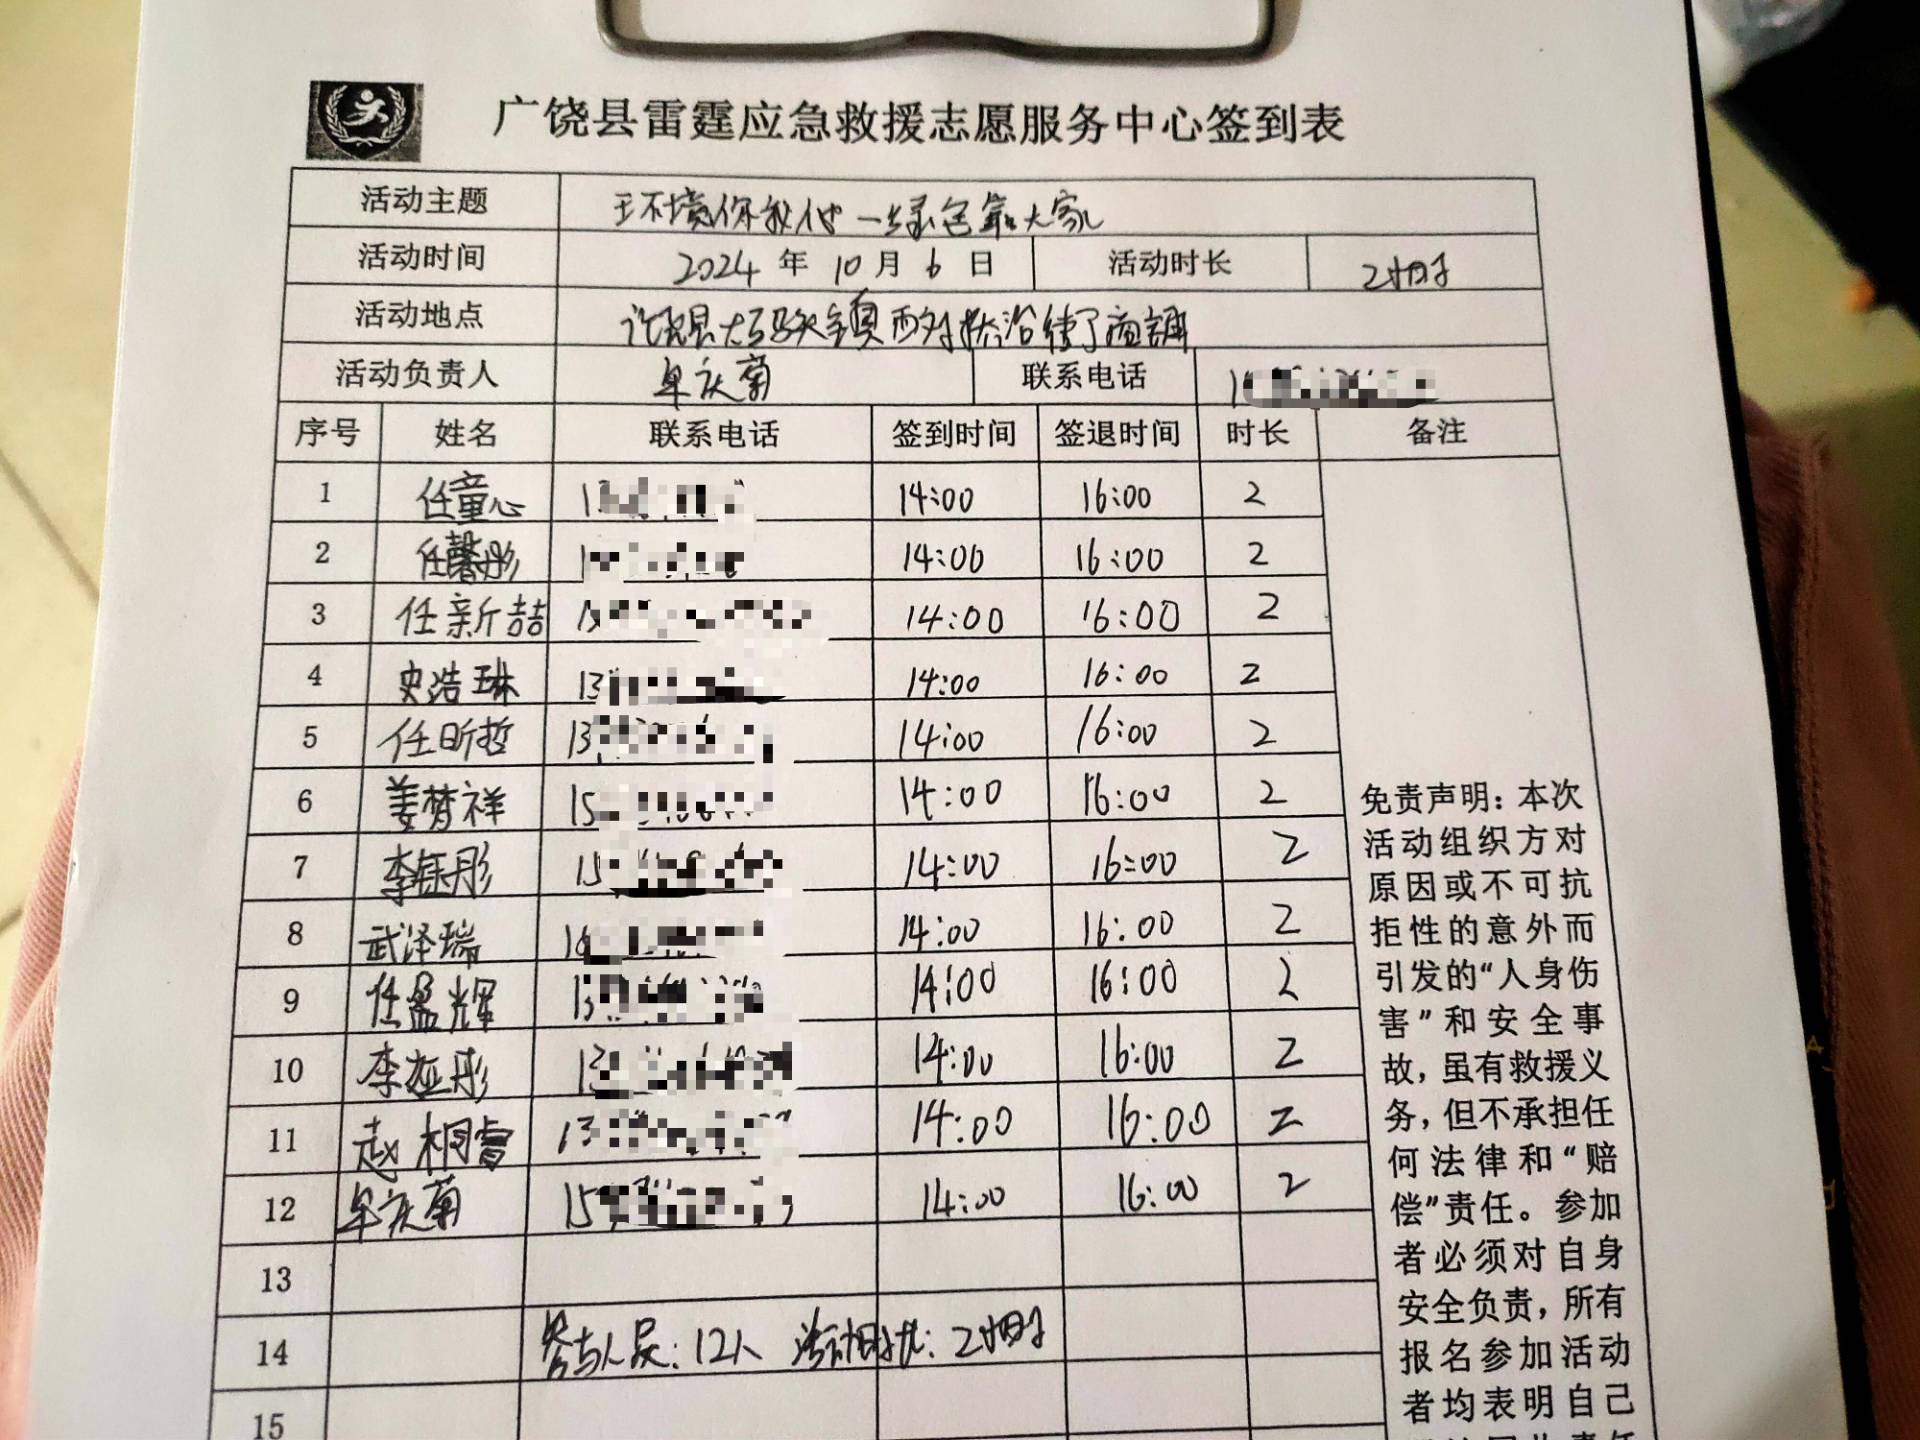 广饶县雷霆应急救援志愿服务中心签到表
活动主题 环境你我他 一绿色靠大家
活动时间 2024 年 10 月 6 日 活动时长 2小时
活动地点 饶县大码头镇西刘桥沿街商铺
活动负责人 牟庆菊 联系电话 1
序号 姓名 联系电话 签到时间 签退时间 时长 备注
1 任童心 13 14:00 16:00 2
2 任馨彤 1 14:00 16:00 2
3 任新喆 14:00 16:00 2
4 史浩琳 13 14:00 16:00 2
5 任昕哲 13 14:00 16:00 2
6 姜梦祥 15 14:00 16:00 2
7 李钰彤 15 14:00 16:00 2
8 武泽瑞 14:00 16:00 2
9 任孟辉 13 14:00 16:00 2
10 李彤 13 14:00 16:00 2
11 赵桐睿 13 14:00 16:00 2
12 牟庆菊 15 14:00 16:00 2
13
14 参与人员:12人 活动时长:2小时
15
免责声明:本次
活动组织方对
原因或不可抗
拒性的意外而
引发的“人身伤
害”和安全事
故,虽有救援义
务,但不承担任
何法律和“赔
偿”责任。参加
者必须对自身
安全负责,所有
报名参加活动
者均表明自己